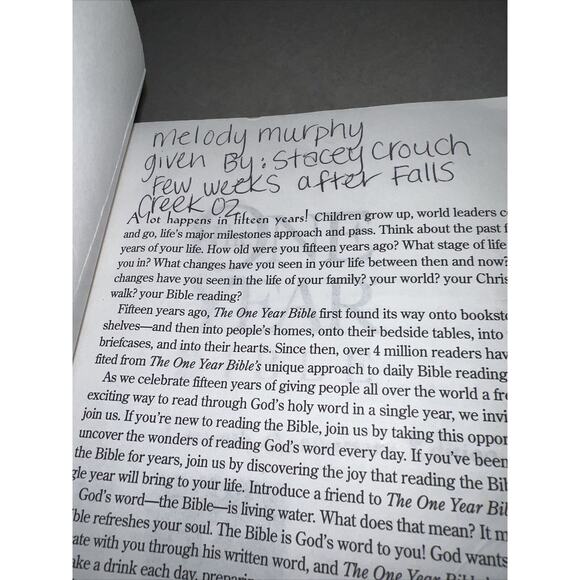 melody murphy
given By: Stacey Crouch
Few weeks after Falls
Creek 02
A lot happens in fifteen years! Children grow up, world leaders c
and go, life's major milestones approach and pass. Think about the past f
years of your life. How old were you fifteen years ago? What stage of life
you in? What changes have you seen in your life between then and now?
changes have you seen in the life of your family? your world? your Chris
walk? your Bible reading?
Fifteen years ago, The One Year Bible first found its way onto booksto
shelves—and then into people's homes, onto their bedside tables, into
briefcases, and into their hearts. Since then, over 4 million readers hav
fited from The One Year Bible's unique approach to daily Bible reading
As we celebrate fifteen years of giving people all over the world a fre
exciting way to read through God's holy word in a single year, we invi
join us. If you're new to reading the Bible, join us by taking this oppor
uncover the wonders of reading God's word every day. If you've been
the Bible for years, join us by discovering the joy that reading the Bib
gle year will bring to your life. Introduce a friend to The One Year Bib
God's word—the Bible—is living water. What does that mean? It m
ble refreshes your soul. The Bible is God's word to you! God wants
ate with you through his written word, and The One Year Bibl
ake a drink each day, preparin